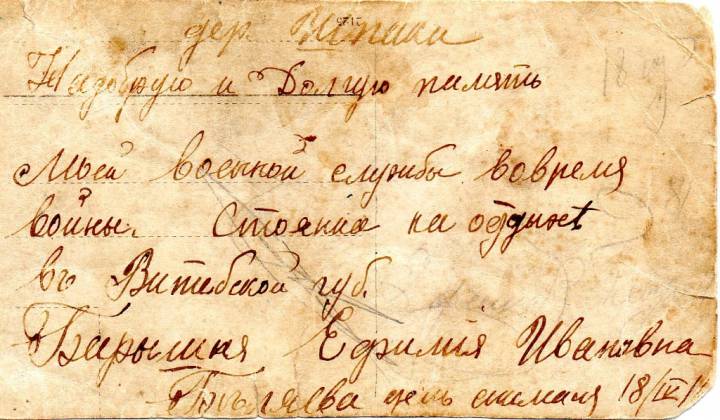 дер. Шпаки
На добрую и Долгую память
Моей военной службы вовремя
войны. Стоянка на отдыхѣ
въ Витебской губ.
Барышня Ефимія Ивановна
Бѣляева день снимался 18/IV